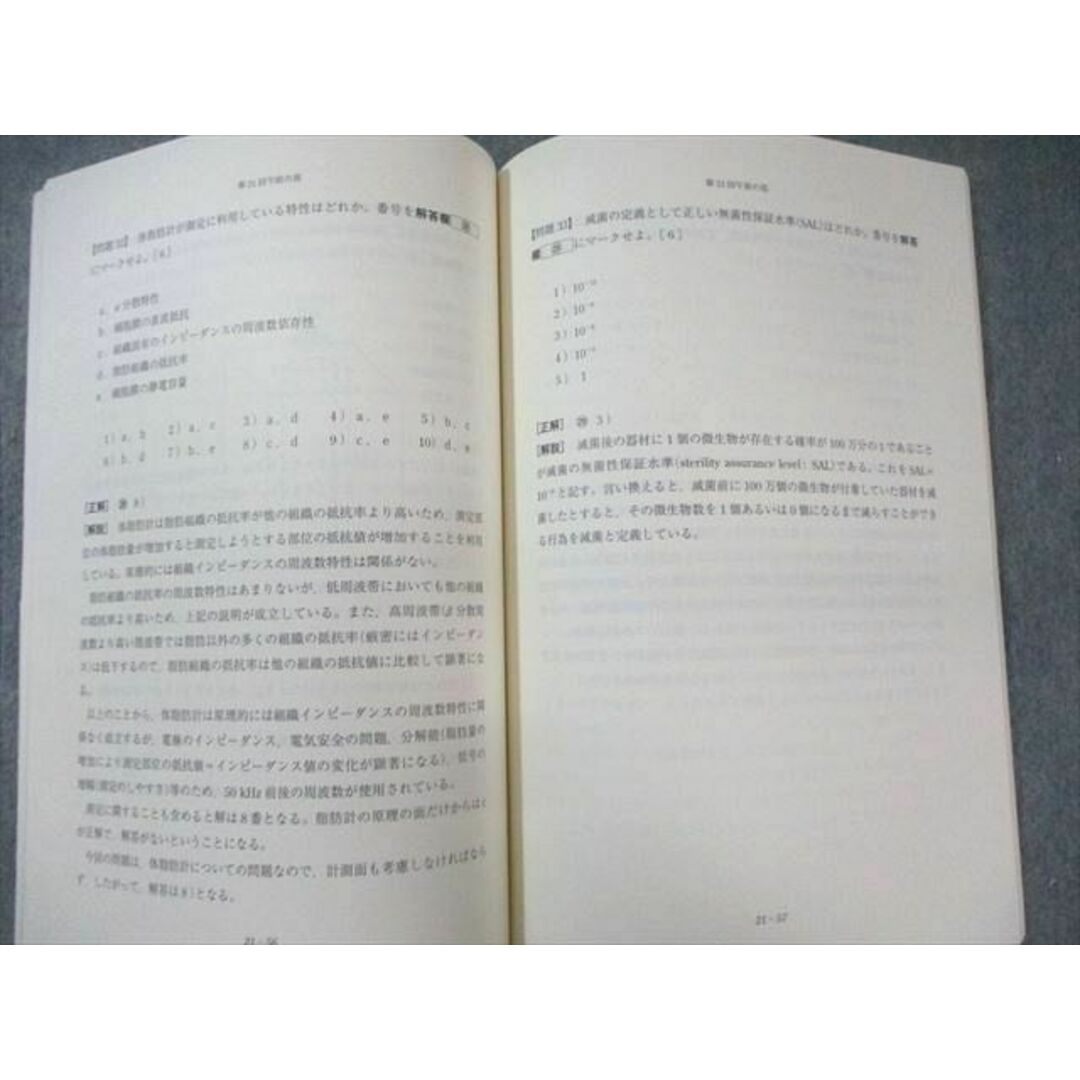 第21回午前の部
【問題32】 体脂肪計が測定に利用している特性はどれか。番号を解答欄
にマークせよ。[6]
a. α分散特性
b. 細胞膜の直流抵抗
c. 組織固有のインピーダンスの周波数依存性
d. 脂肪組織の抵抗率
e. 細胞膜の静電容量
1) a, b 2) a, c 3) a, d 4) a, e 5) b, c
6) b, d 7) b, e 8) c, d 9) c, e 10) d, e
[正解] 8)
[解説] 体脂肪計は脂肪組織の抵抗率が他の組織の抵抗率より高いため、測定部
位の体脂肪量が増加すると測定しようとする部位の抵抗値が増加することを利用
している。原理的には組織インピーダンスの周波数特性は関係がない。
脂肪組織の抵抗率の周波数特性はあまりないが、低周波帯においても他の組織
の抵抗率より高いため、上記の説明が成立している。また、高周波帯(β分散周
波数より高い周波帯では脂肪以外の多くの組織の抵抗率(厳密にはインピーダン
ス)は低下するので、脂肪組織の抵抗率は他の組織の抵抗値に比較して顕著にな
る。
以上のことから、体脂肪計は原理的には組織インピーダンスの周波数特性に関
係なく成立するが、電極のインピーダンス、電気安全の問題、分解能(脂肪量の
増加により測定部位の抵抗値=インピーダンス値の変化が顕著になる)、信号の
増幅(測定のしやすさ)等のため、50 kHz 前後の周波数が使用されている。
測定に関することも含めると解は8番となる。脂肪計の原理の面だけからはd
が正解で、解答がないということになる。
今回の問題は、体脂肪計についての問題なので、計測面も考慮しなければなら
ず、したがって、解答は8)となる。
21-56
第21回午前の部
【問題33】 滅菌の定義として正しい無菌性保証水準(SAL)はどれか。番号を解答
欄 にマークせよ。[6]
1) 10
2) 10
3) 10
4) 10
5) 1
[正解] 3)
[解説] 滅菌後の器材に1個の微生物が存在する確率が100万分の1であること
が滅菌の無菌性保証水準(sterility assurance level: SAL)である。これをSAL=
10⁻⁶と記す。言い換えると、滅菌前に100万個の微生物が付着していた器材を滅
菌したとすると、その微生物数を1個あるいは0個になるまで減らすことができ
る行為を滅菌と定義している。
21-57